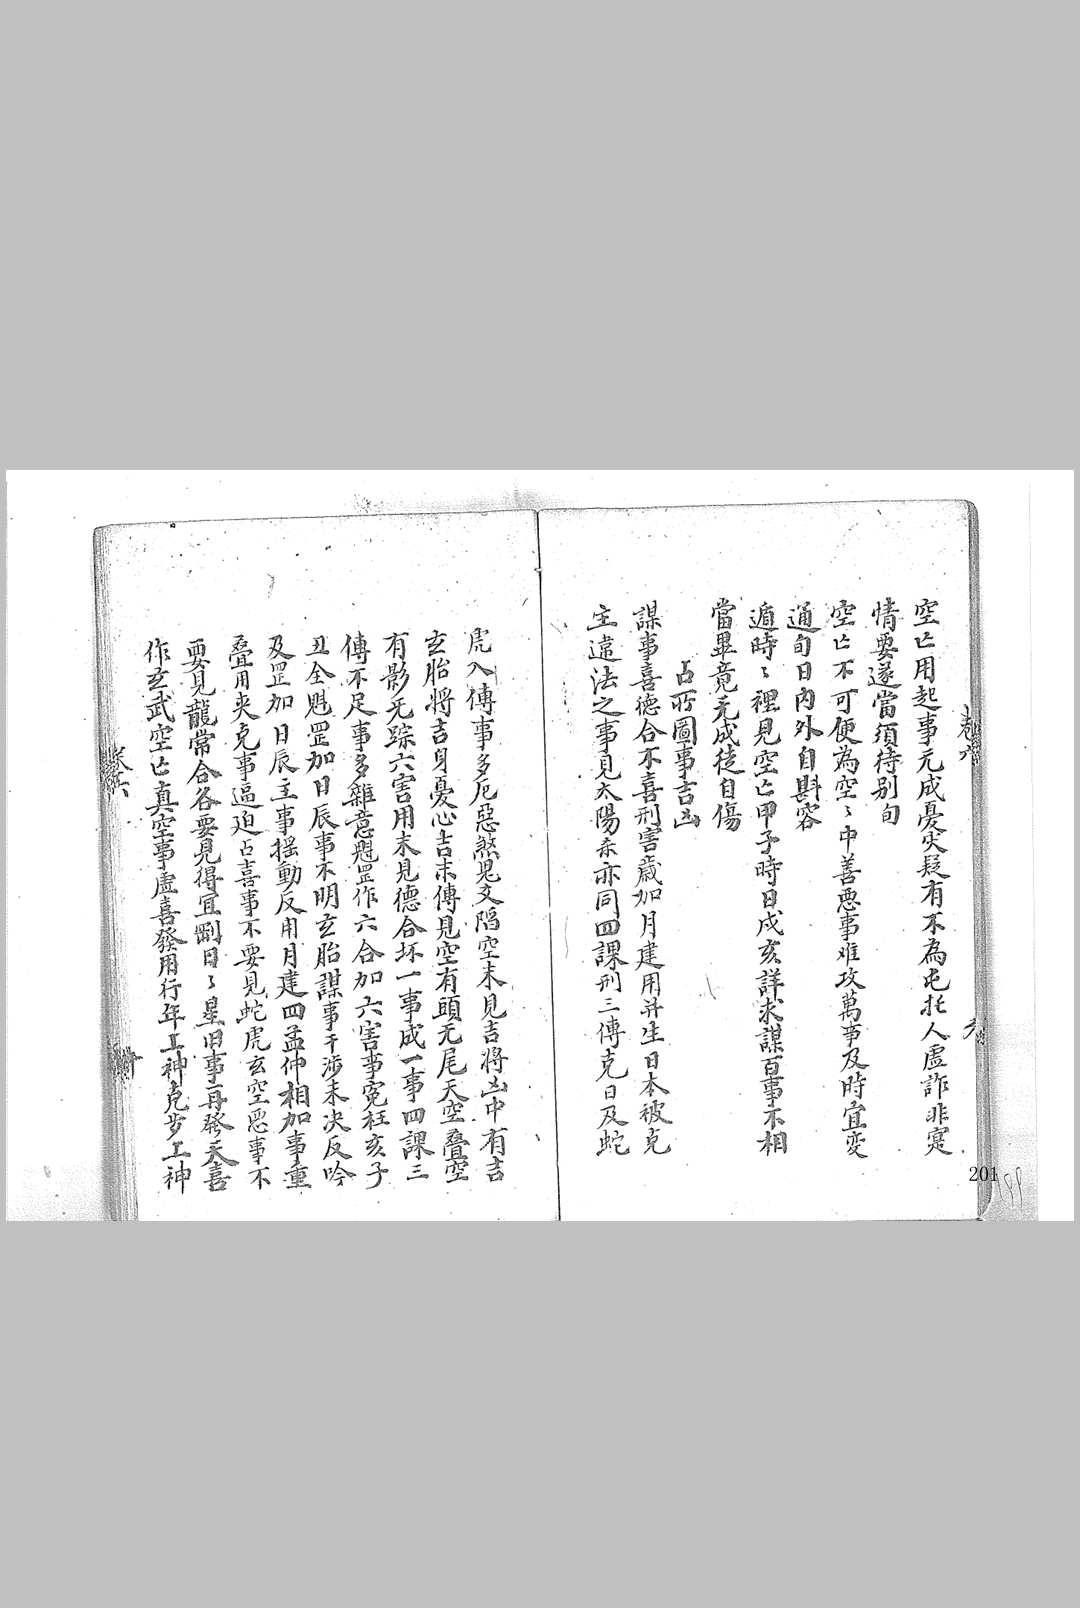 空亡用起事元成憂災疑有不為屯托人虛詐非寔
情要遂當須待別旬
空亡不可便為空〻中善悪事难攻萬事及時宜变
通旬日内外自斟容
遁時〻裡見空亡甲子時日戌亥詳求謀百事不相
當畢竟无成徒自傷
占所圖事吉凶
謀事喜德合不喜刑害歲加月建用并生日本被克
主違法之事見太陽乘亦同四課刑三傳克日及蛇
虎入傳事多厄惡煞児交陷空末見吉将凶中有吉
玄胎将吉身憂心吉末傳見空有頭无尾天空叠空
有影无踪六害用末見德合坏一事成一事四課三
傳不足事多雜意魁罡作六合加六害事寃枉亥子
丑全魁罡加日辰事不明玄胎謀事干涉未决反吟
及罡加日辰主事摇動反用月建四孟仲相加事重
疊用夹克事逼迫占喜事不要見蛇虎玄空惡事不
要見龍常合各要見得宜剛日〻星旧事再發天喜
作玄武空亡真空事虛喜發用行年工神克步工神
卷六
201